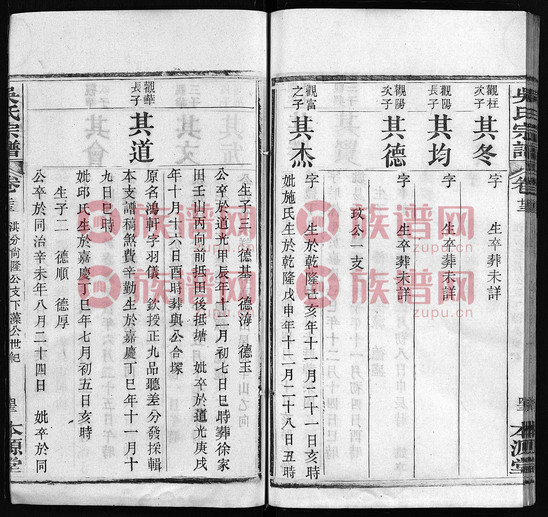 吳氏宗譜
卷三
本源堂
觀柱次子
其冬
字
生卒葬未詳
觀陽長子
其均
字
生卒葬未詳
觀陽次子
其德
字
生卒葬未詳
玫公一支
觀富之子
其杰
字
生於乾隆己亥年十一月二十一日亥時
妣施氏生於乾隆戊申年十二月二十八日丑時
生子三 德基 德淳 德玉
公卒於道光甲辰年十二月初七日巳時葬徐家
田壬山丙向前抵田後抵塘 妣卒於道光庚戌
年十月十六日酉時葬與公合塚
觀華長子
其道
原名鴻軒字羽儀 欽授正九品聽差分發採輯
本支譜稿煞費辛勤生於嘉慶丁巳年十一月十
九日巳時
妣邱氏生於嘉慶丁巳年七月初五日亥時
生子二 德順 德厚
公卒於同治辛未年八月二十四日 妣卒於同
吳氏宗譜
卷三
淇分尚隆公支下藻公世紀
本源堂
族谱网
zupu.cn